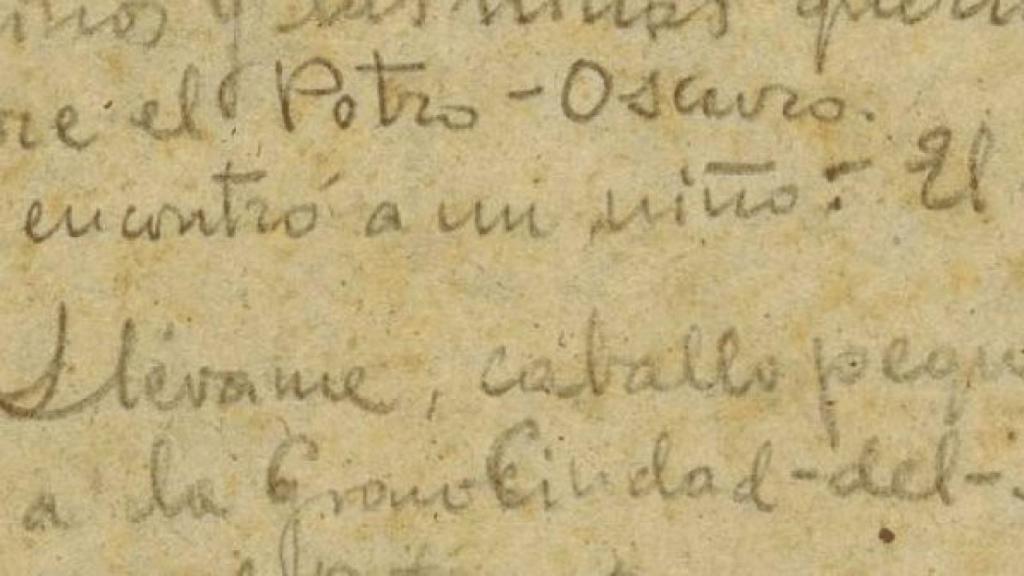 y las niñas
el Potro-Oscuro.
encontró a un niño: El
Llévame, caballo
a la Gran Ciudad-del-